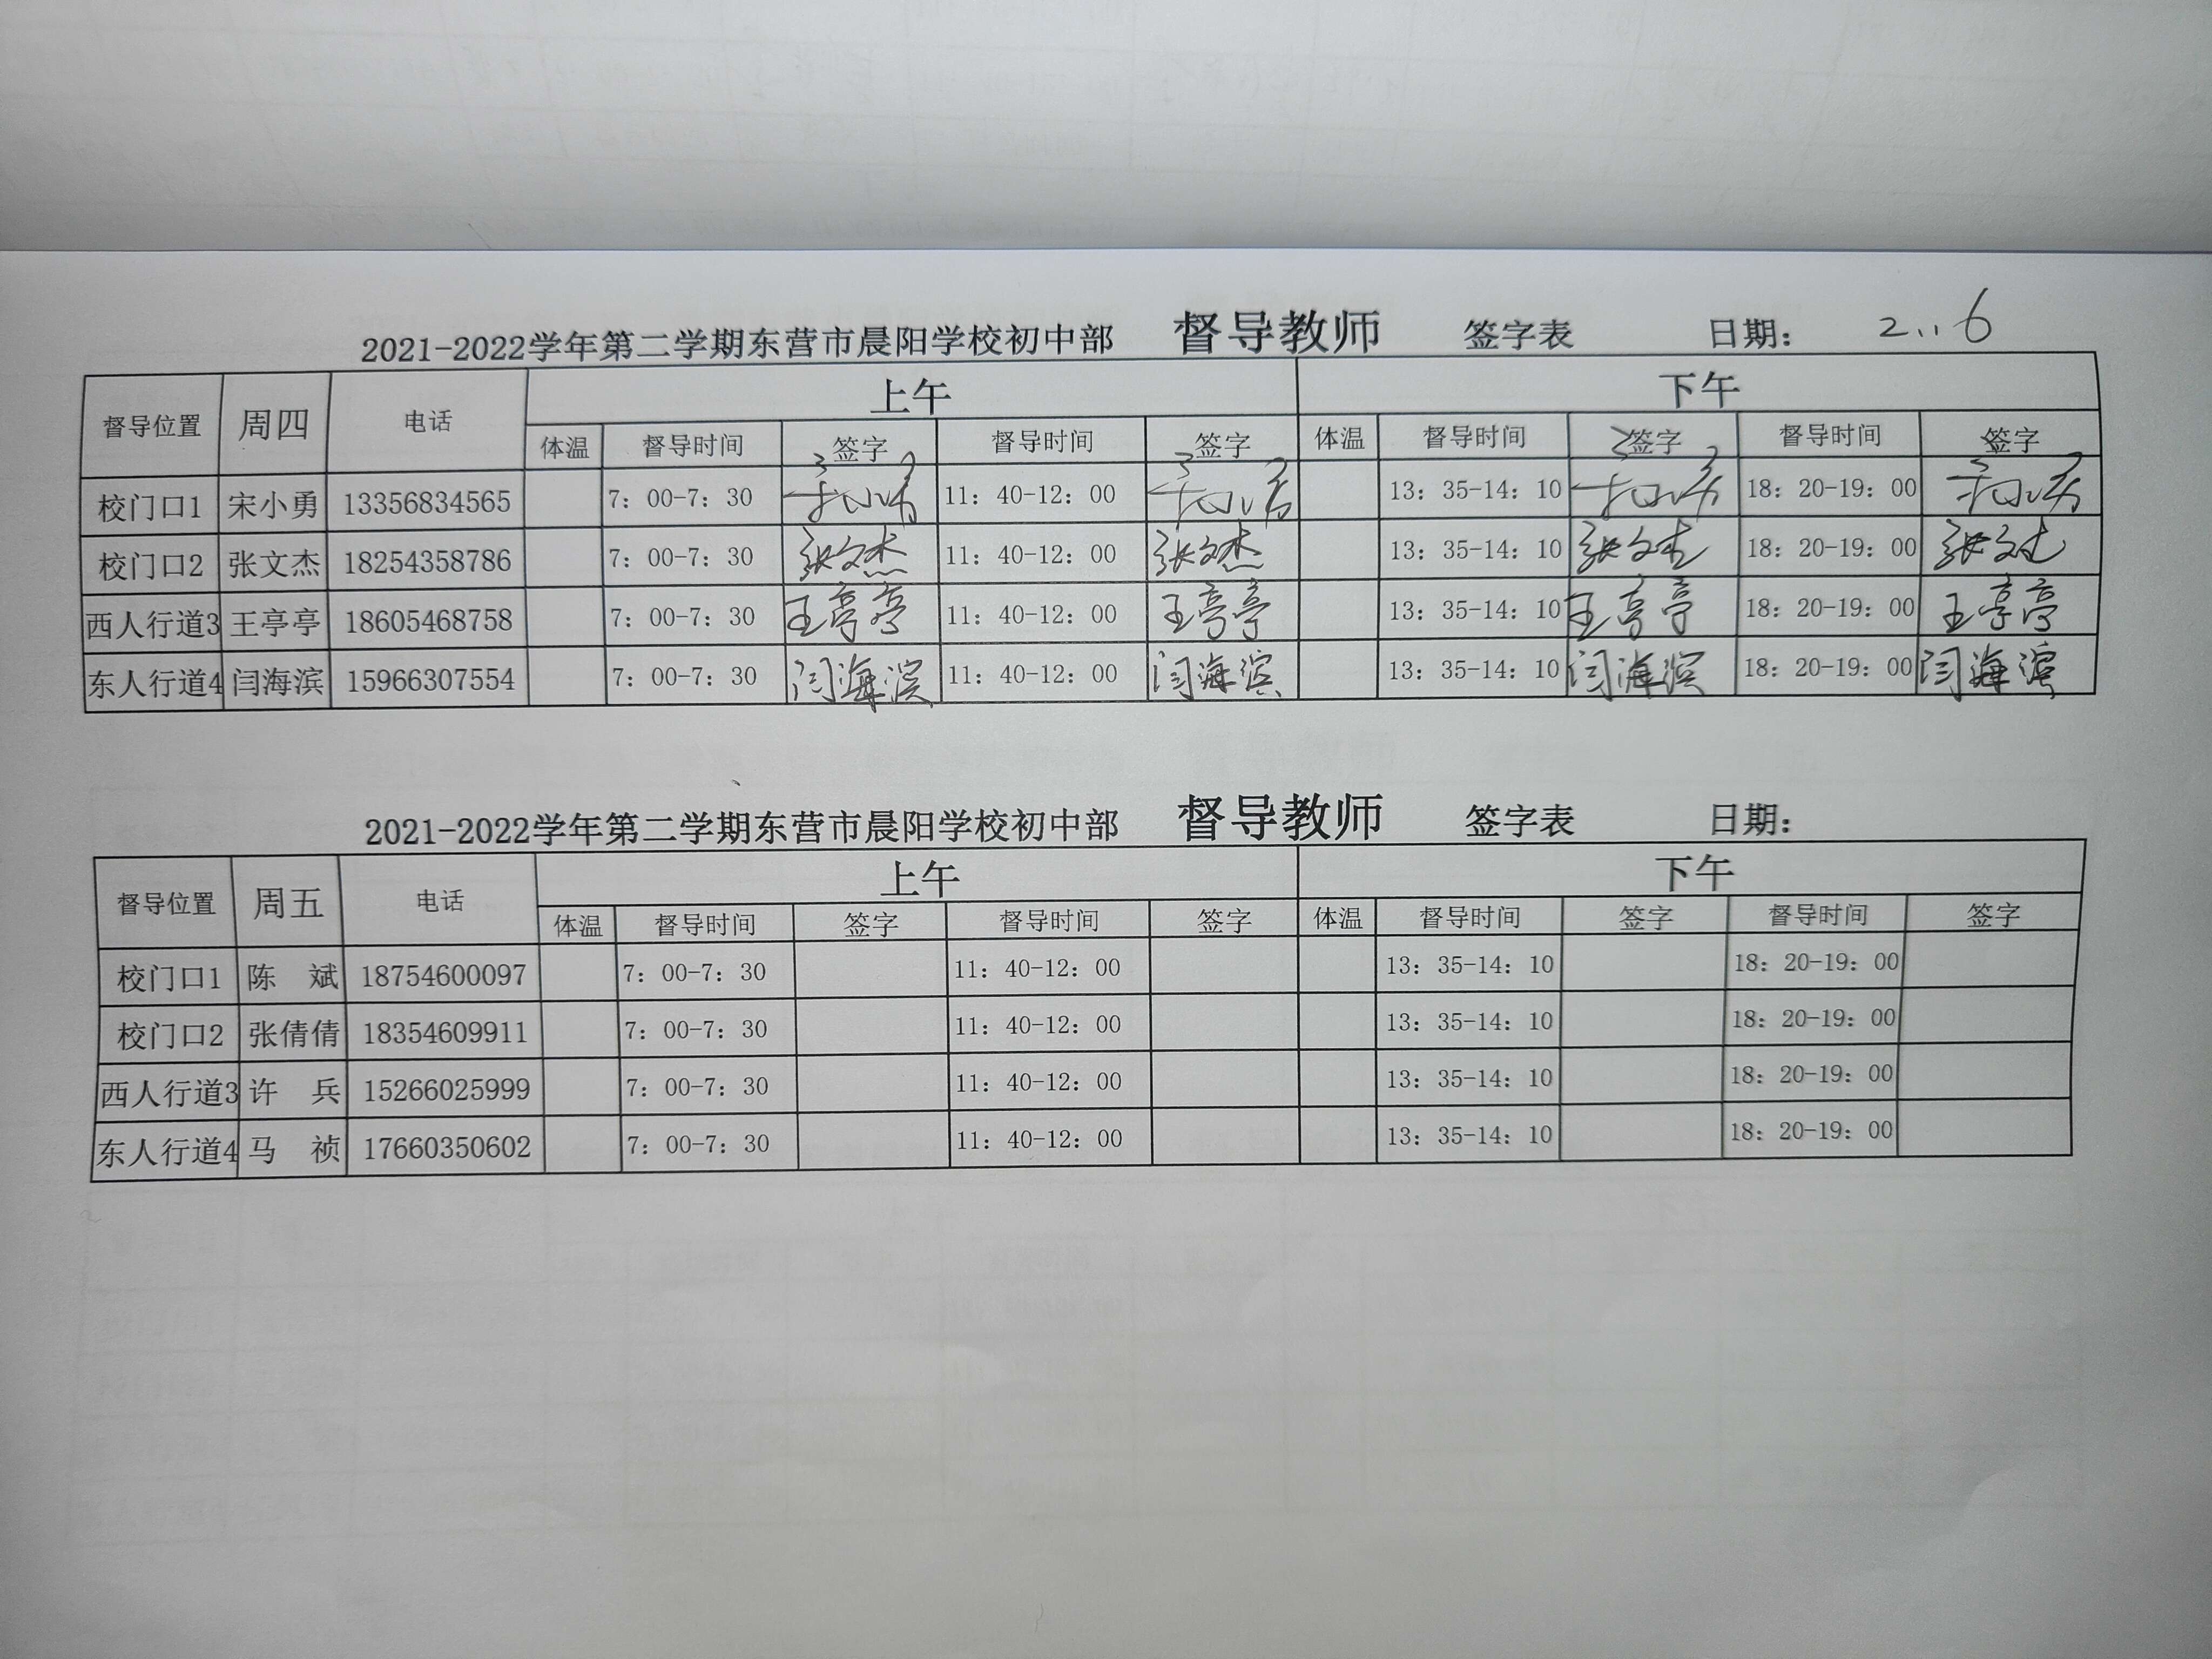 2021-2022学年第二学期东营市晨阳学校初中部 督导教师 签字表 日期： 2..6
督导位置 周四 电话 上午 下午
体温 督导时间 签字 督导时间 签字 体温 督导时间 签字 督导时间 签字
校门口1 宋小勇 13356834565 7：00-7：30 宋小勇 11：40-12：00 宋小勇 13：35-14：10 宋小勇 18：20-19：00 宋小勇
校门口2 张文杰 18254358786 7：00-7：30 张文杰 11：40-12：00 张文杰 13：35-14：10 张文杰 18：20-19：00 张文杰
西人行道3 王亭亭 18605468758 7：00-7：30 王亭亭 11：40-12：00 王亭亭 13：35-14：10 王亭亭 18：20-19：00 王亭亭
东人行道4 闫海滨 15966307554 7：00-7：30 闫海滨 11：40-12：00 闫海滨 13：35-14：10 闫海滨 18：20-19：00 闫海滨
2021-2022学年第二学期东营市晨阳学校初中部 督导教师 签字表 日期：
督导位置 周五 电话 上午 下午
体温 督导时间 签字 督导时间 签字 体温 督导时间 签字 督导时间 签字
校门口1 陈 斌 18754600097 7：00-7：30 11：40-12：00 13：35-14：10 18：20-19：00
校门口2 张倩倩 18354609911 7：00-7：30 11：40-12：00 13：35-14：10 18：20-19：00
西人行道3 许 兵 15266025999 7：00-7：30 11：40-12：00 13：35-14：10 18：20-19：00
东人行道4 马 祯 17660350602 7：00-7：30 11：40-12：00 13：35-14：10 18：20-19：00